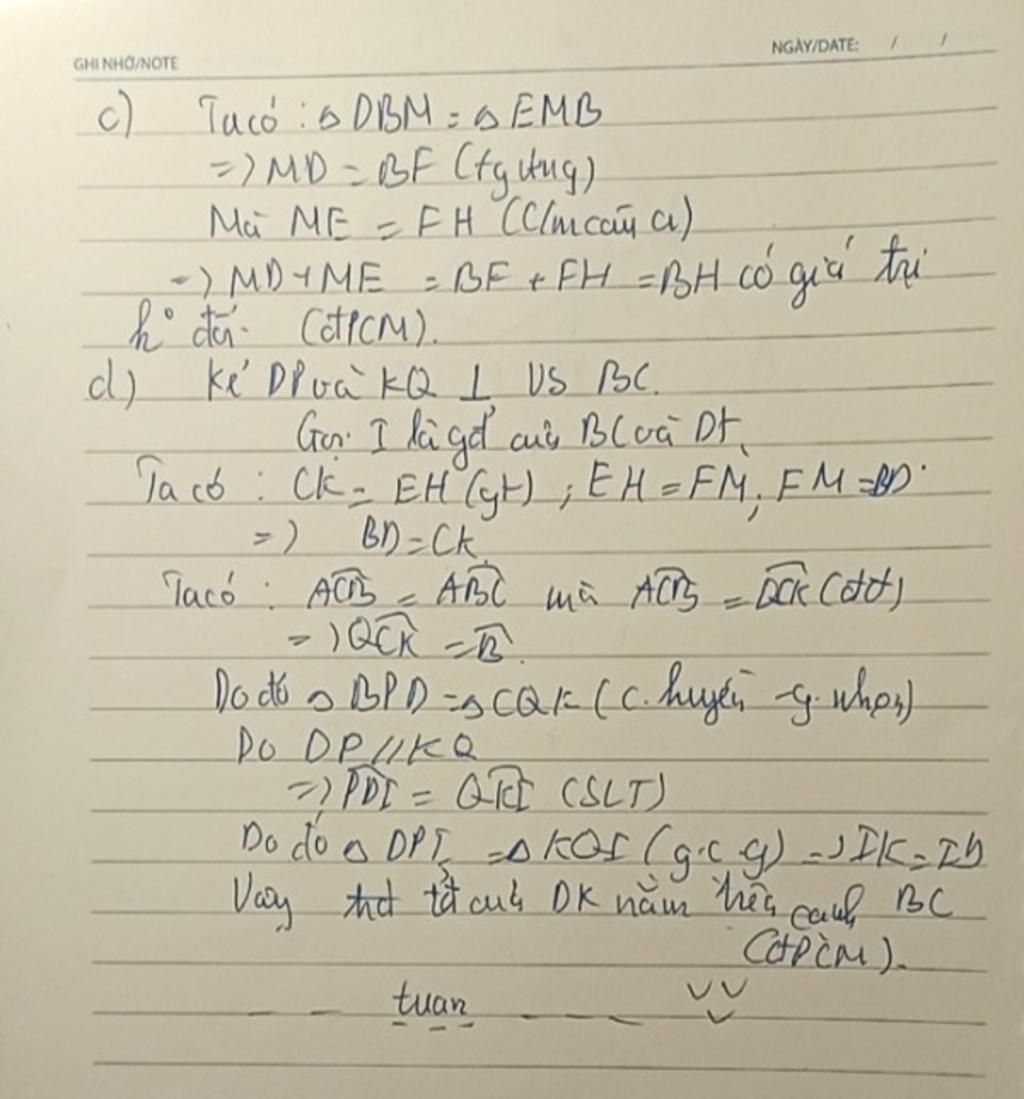 GHI NHỚ/NOTE
NGÀY/DATE: / /
c) Ta có : Δ DBM = Δ EMB
=> MD = BF (tg ứng)
Mà ME = FH (C/m câu a)
=> MD + ME = BF + FH = BH có giá trị
k° đổi. (đPCM).
d) Kẻ DP và KQ ⊥ vs BC.
Gọi I là gđ của BC và DK
Ta có : CK = EH (gt) ; EH = FM ; FM = BD.
=> BD = CK
Ta có : ACB = ABC mà ACB = QCK (đđ)
=> QCK = B.
Do đó Δ BPD = Δ CQK (c. huyền - g. nhọn)
Do DP // KQ
=> PDI = QKI (SLT)
Do đó Δ DPI = Δ KQI (g.c.g) => IK = ID
Vậy tđ của DK nằm trên cạnh BC
(đPCM).
tuan